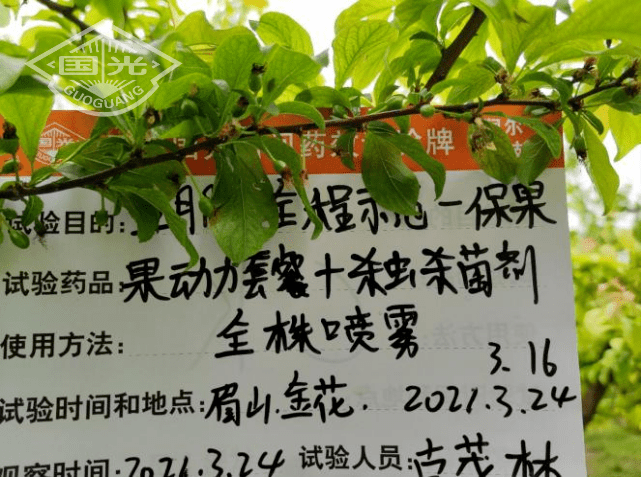 国光
GUOGUANG
国光 药 牌
试验目的: 全程示范-保果
试验药品:果动力套餐+杀虫杀菌剂
使用方法: 全株喷雾
3.16
试验时间和地点:眉山.金花. 2021.3.24
观察时间:2021.3.24 试验人员:古茂林